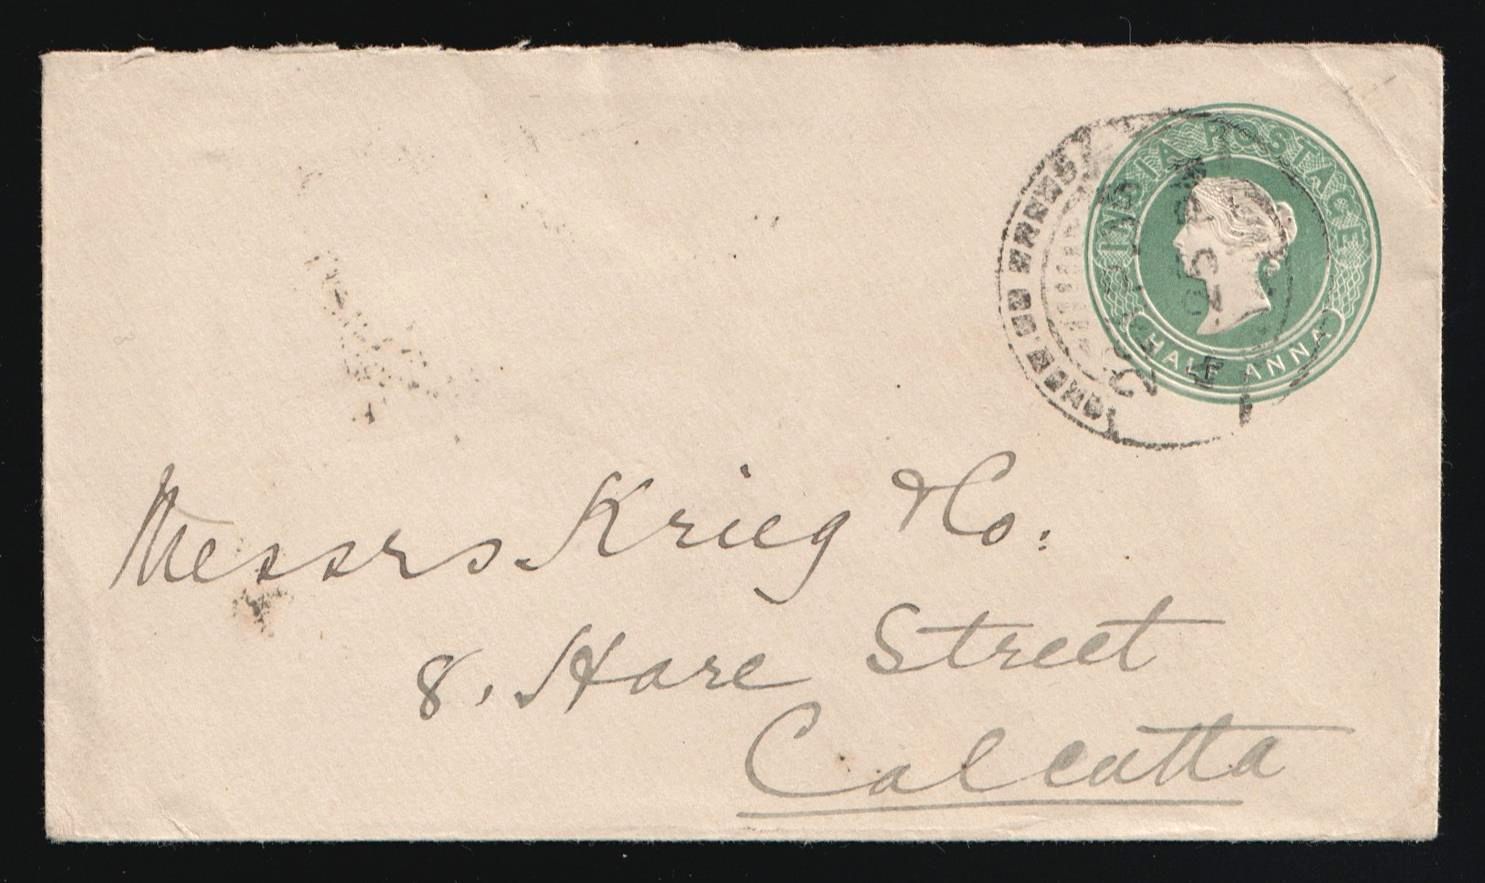 INDIA POSTAGE
HALF ANNA
Messrs Krieg & Co.
8, Hare Street
Calcutta